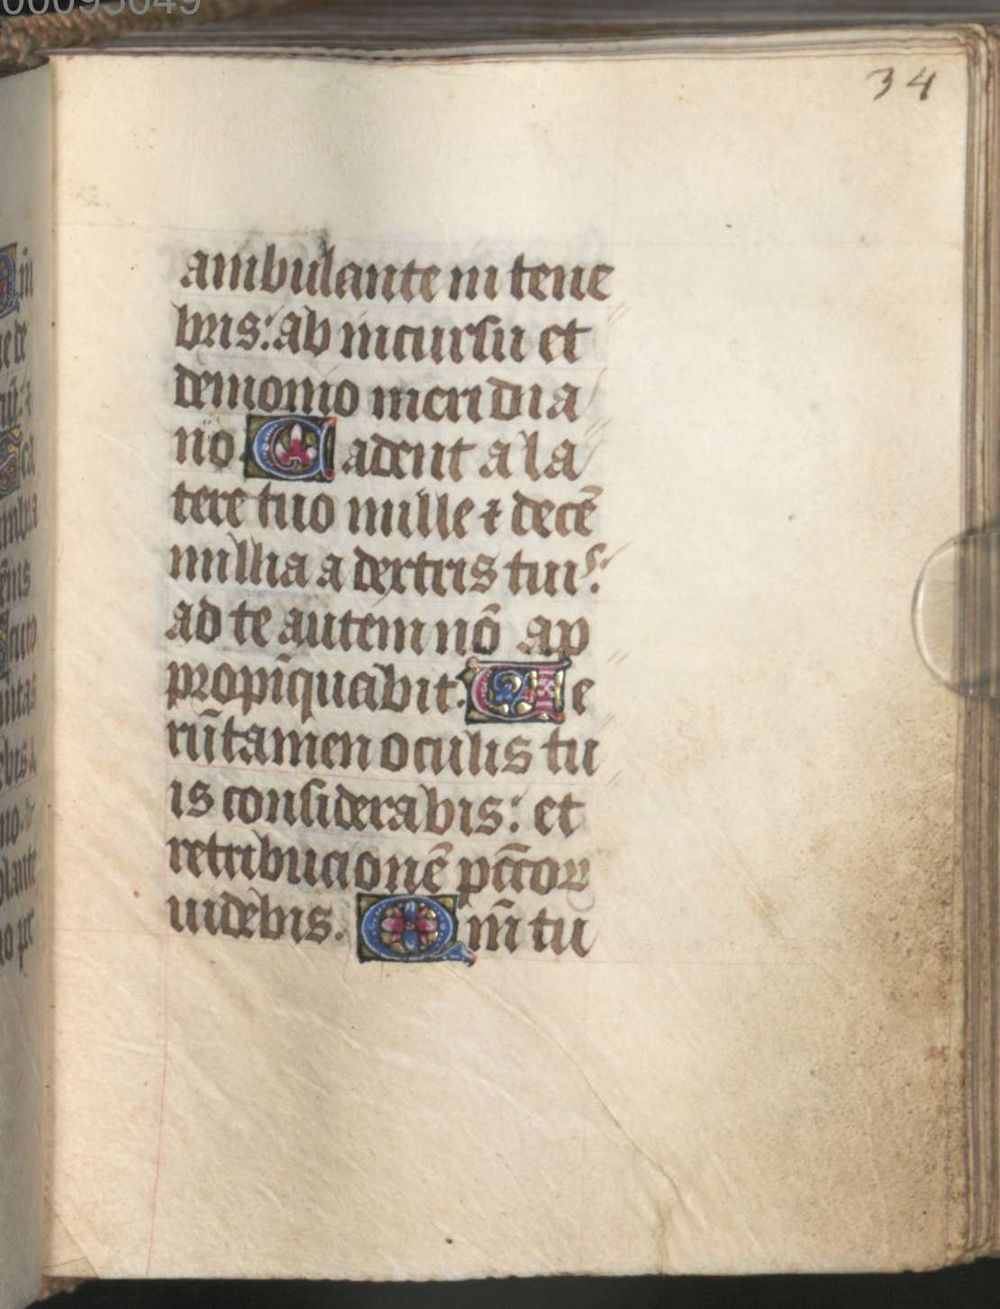 00095649
34
ambulante in tene
bris: ab incursu et
demonio meridia
no Cadent a la
tere tuo mille ⁊ decē
millia a dextris tuis:
ad te autem nō ap
propīquabit. Ve
rūtamen oculis tu
is considerabis: et
retribucionē pctōꝝ
uidebis. Qm̄ tu